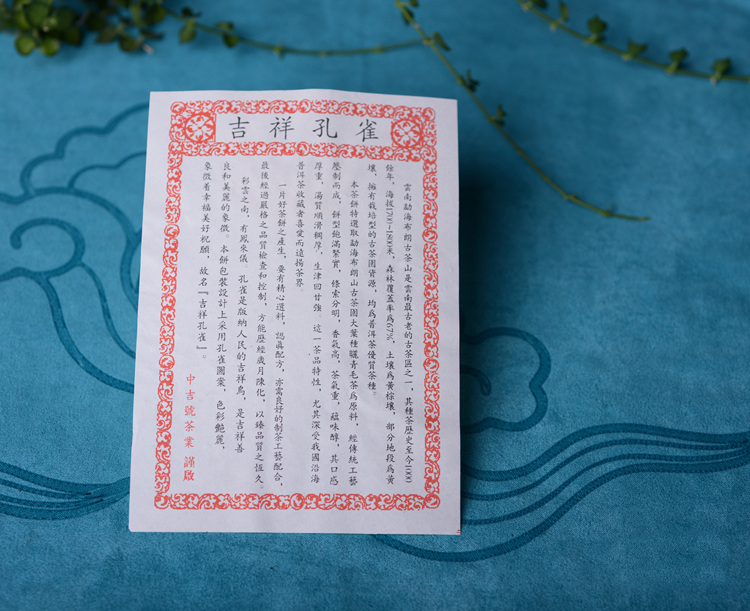 吉祥孔雀
雲南勐海布朗古茶山是雲南最古老的古茶區之一，其種茶歷史至今1000
餘年，海拔1700~1800米，森林覆蓋率爲67%，土壤爲黃棕壤，部分地段爲黃
壤，擁有栽培型的古茶園資源，均爲普洱茶優質茶種。
本茶餅特選取勐海布朗山古茶園大葉種曬青毛茶爲原料，經傳統工藝
壓制而成，餅型飽滿緊實，條索分明，香氣高，茶氣重，蘊味醇，其口感
厚重，湯質順滑稠厚，生津回甘強，這一茶品特性，尤其深受我國沿海
普洱茶收藏者喜愛而遠揚茶界。
一片好茶餅之產生，要有精心選料，認眞配方，亦需良好的制茶工藝配合，
最後經過嚴格之品質檢查和控制，方能歷經歲月陳化，以臻品質之恆久。
彩雲之南，有鳳來儀，孔雀是版納人民的吉祥鳥，是吉祥善
良和美麗的象徵。本餅包裝設計上采用孔雀圖案，色彩艷麗，
象徵着幸福美好祝願，故名『吉祥孔雀』。
中吉號茶業 謹啟